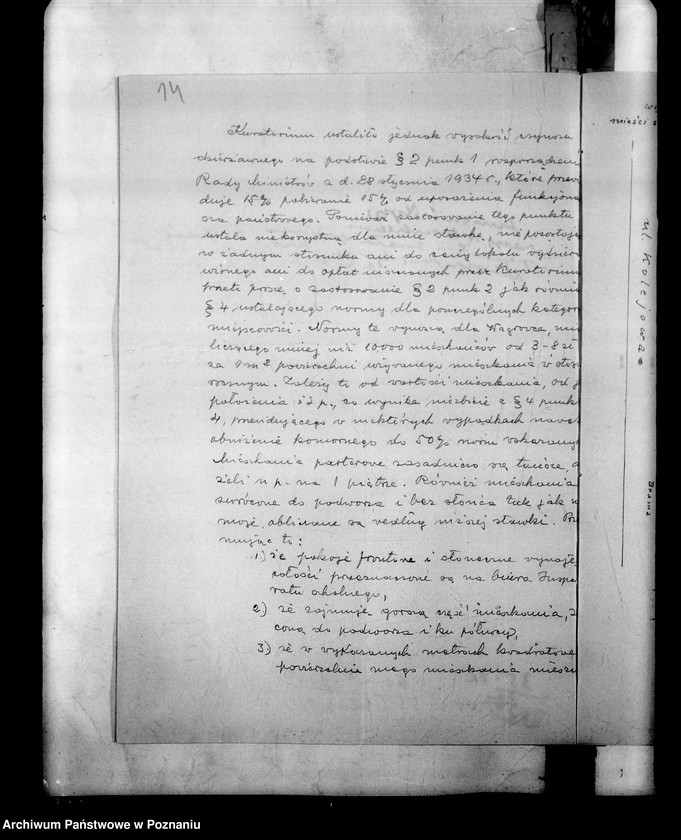 14
Kuratorium ustaliło jednak wysokość czynszu
dzierżawnego na podstawie § 2 punkt 1 rozporządzeni
Rady Ministrów z d. 28 stycznia 1934 r., które przewi
duje 15% pobieranie 15% od uposażenia funkcjona
rza państwowego. Ponieważ zastosowanie tego punktu
ustala niekorzystną dla mnie stawkę, nie pozostają
w żadnym stosunku ani do ceny lokalu wydzier
wionego ani do opłat uiszczanych przez Kuratorium
przeto proszę o zastosowanie § 2 punk 2 jak równie
§ 4 ustalającego normy dla poszczególnych kategor
miejscowości. Normy te wynoszą dla Wągrowca, mi
liczącego mniej niż 10.000 mieszkańców od 3-8 zł
za 1 m² powierzchni używanego mieszkania w stos
rocznym. Zależy to od wartości mieszkania, od j
położenia i t p., co wynika niezbicie z § 4 punkt
4, przewidującego w niektórych wypadkach nawet
obniżenie komornego do 50% norm wskazany
Mieszkania parterowe zasadniczo są tańsze, a
żeli n p. na 1 piętrze. Również mieszkania
zwrócone do podwórza i bez słońca tak jak w
moje, obliczane są według niższej stawki. Prz
mując to:
1) że pokoje frontowe i słoneczne wynaję
całości przeznaczone są na biura Inspe
ratu szkolnego,
2) że zajmuję gorszą część mieszkania, z
coną do podwórza i ku północy,
3) że w wykazanych metrach kwadratowe
powierzchnia mego mieszkania mieszc
mieści s
ul. Kolejowa
Brama
Archiwum Państwowe w Poznaniu